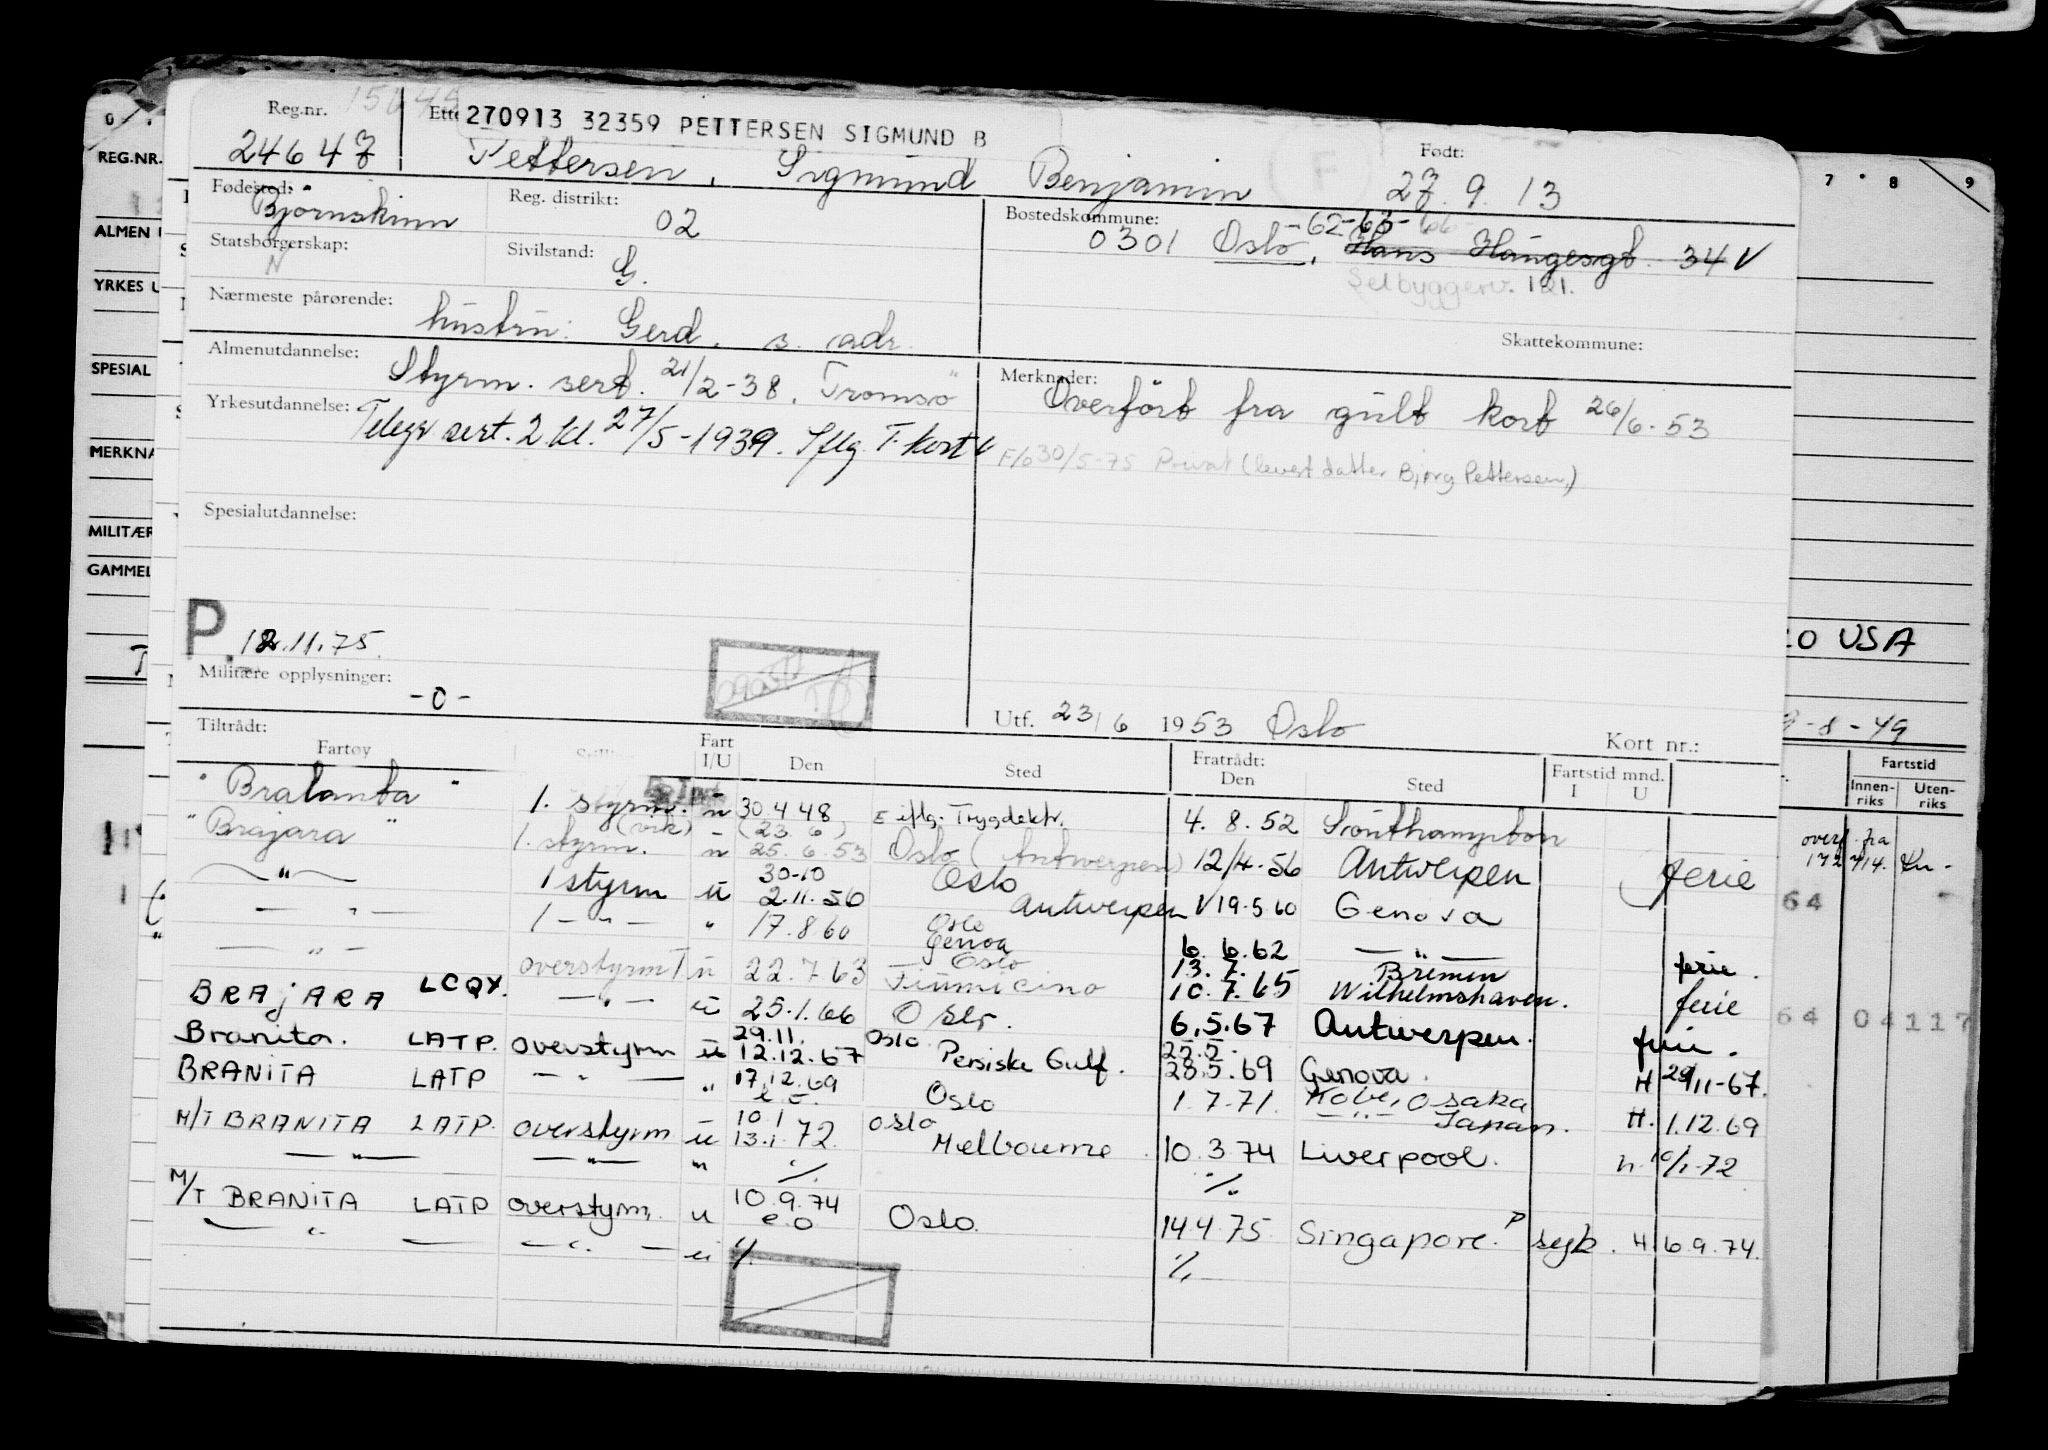 Reg.nr.
270913 32359 PETTERSEN SIGMUND B
Født:
24647
Pettersen, Sigmund Benjamin
27.9.13
Fødested:
Bjørnskinn
Reg. distrikt:
02
Bostedskommune:
-62-63-66
0301 Oslo, Hans Haugesgt. 34 V
Selbyggerv. 121.
Statsborgerskap:
N
Sivilstand:
G.
Nærmeste pårørende:
hustru: Gerd, s. adr.
Skattekommune:
Almenutdannelse:
Styrm. sert. 21/2-38, Tromsø
Merknader:
Overført fra gult kort 26/6-53
Yrkesutdannelse:
Telegr sert. 2 kl. 27/5-1939. Iflg. T. kort
F/o 30/5-75 Privat (levert datter Bjørg Pettersen)
Spesialutdannelse:
P.
12.11.75.
Militære opplysninger:
-0-
Utf. 23/6 1953 Oslo
Kort nr.:
Tiltrådt:
Fartøy
Fart I/U
Den
Sted
Fratrådt:
Den
Sted
Fartstid mnd.
I U
"Bralanta" 1. styrm. u 30 4 48 E iflg. Trygdektr. 4.8.52 Southampton
"Brajara" 1. styrm. (vik) u (23.6) 25.6.53 Oslo (Antwerpen) 12/4-56 Antwerpen ferie
" 1 styrm u 30-10 2.11.56 Oslo Antwerpen V 19.5.60 Genova
" 1 - " - " 17.8 60 Oslo Genoa 6.6.62 " ferie.
" overstyrm u 22.7 63 Oslo Fiumicino 13.7. 10.7.65 Bremen Wilhelmshaven. ferie
BRAJARA LCQX. " u 25.1.66 Oslo. 6.5.67 Antwerpen. ferie.
Branita. LATP. overstyrm u 29.11. 12.12.67 Oslo Persiske Gulf. 25.5. 28.5.69 Genova. H 29/11-67.
BRANITA LATP - " - " 17.12.69 e.o. Oslo 1.7.71. Kobe, Osaka Japan. H. 1.12.69
M/T BRANITA LATP. overstyrm u 10 1 13.1.72. Oslo Melbourne 10.3.74 Liverpool. h. 10/1-72
" " " % %
M/T BRANITA LATP overstyrm. u 10.9.74 e.o Oslo. 14.4.75. Singapore. P syk. H. 6.9.74.
" - " - u % %
REG.NR.
ALMEN U
YRKES U
SPESIAL
MERKNA
MILITÆR
GAMMEL
7 8 9
LO USA
-8-49
Fartstid
Innen-riks
Uten-riks
overf. fra
64
64 04117